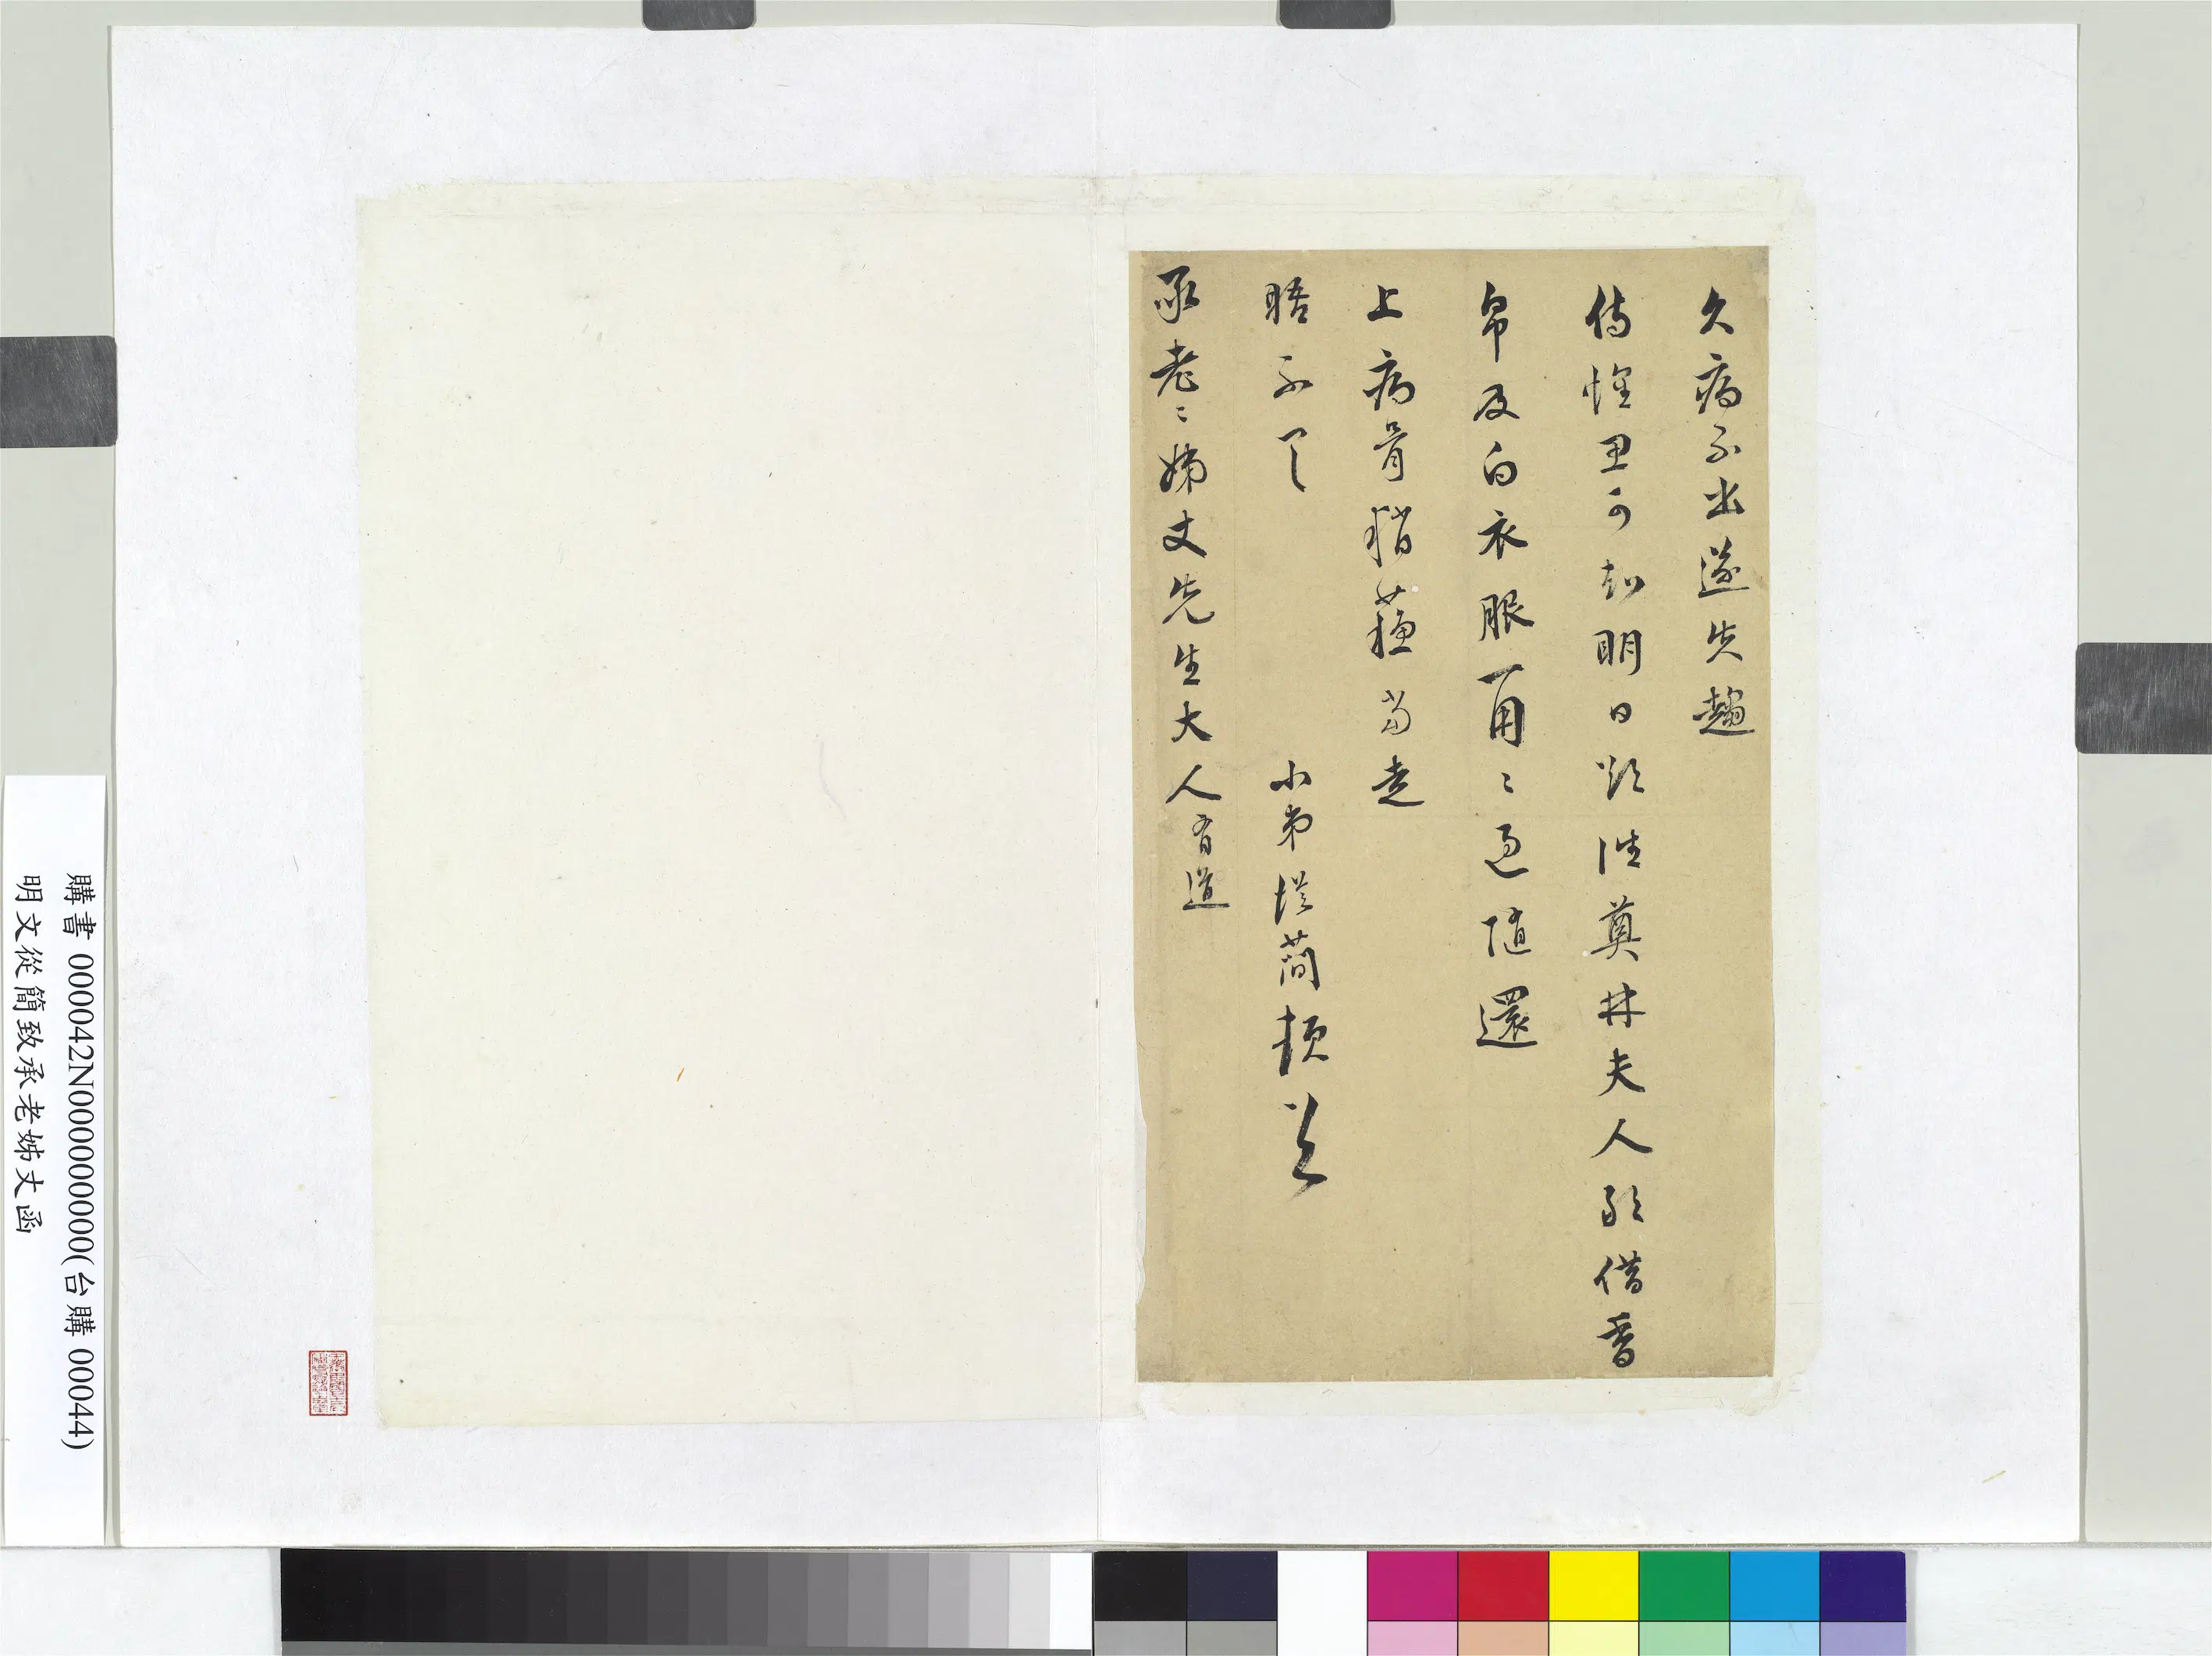 久病不出遂失趨
侍惟垔可知明日欲往奠林夫人敢借香
帛及白衣服一用々過隨還
上病骨稍蘇當走
晤不一
小弟從簡頓首
承老々姊丈先生大人有道
購書 000042N000000000(台購 00044)
明文從簡致承老姊丈函